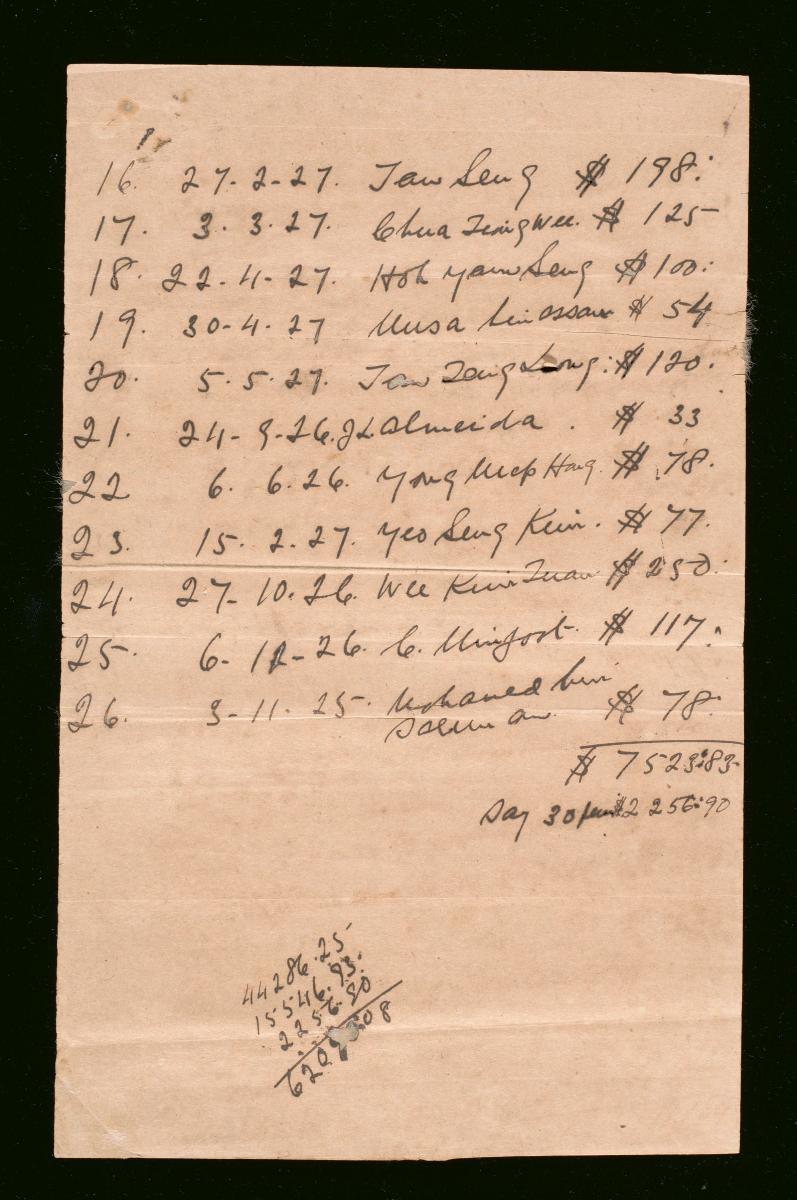 16. 27-2-27. Tan Seng $ 198:
17. 3.3.27. Chua Tiong Wee. $ 125
18. 22-4-27. Hoh Yam Seng $ 100:
19. 30-4-27 Musa bin assan $ 54
20. 5.5.27. Tan Teng Leong: $ 120.
21. 24-9-26. JL Almeida. $ 33
22 6. 6.26. Yong Hong. $ 78.
23. 15.2.27. Yeo Seng Kim. $ 77.
24. 27-10.26. Wee Kim Tuan $ 250:
25. 6-12-26. C. Minjoot. $ 117.
26. 3-11.25. Mohamed bin
$ 78.
$ 7523:83-
Say 30 $2256:90
44286.25
15546.93.
2256.90
62 08